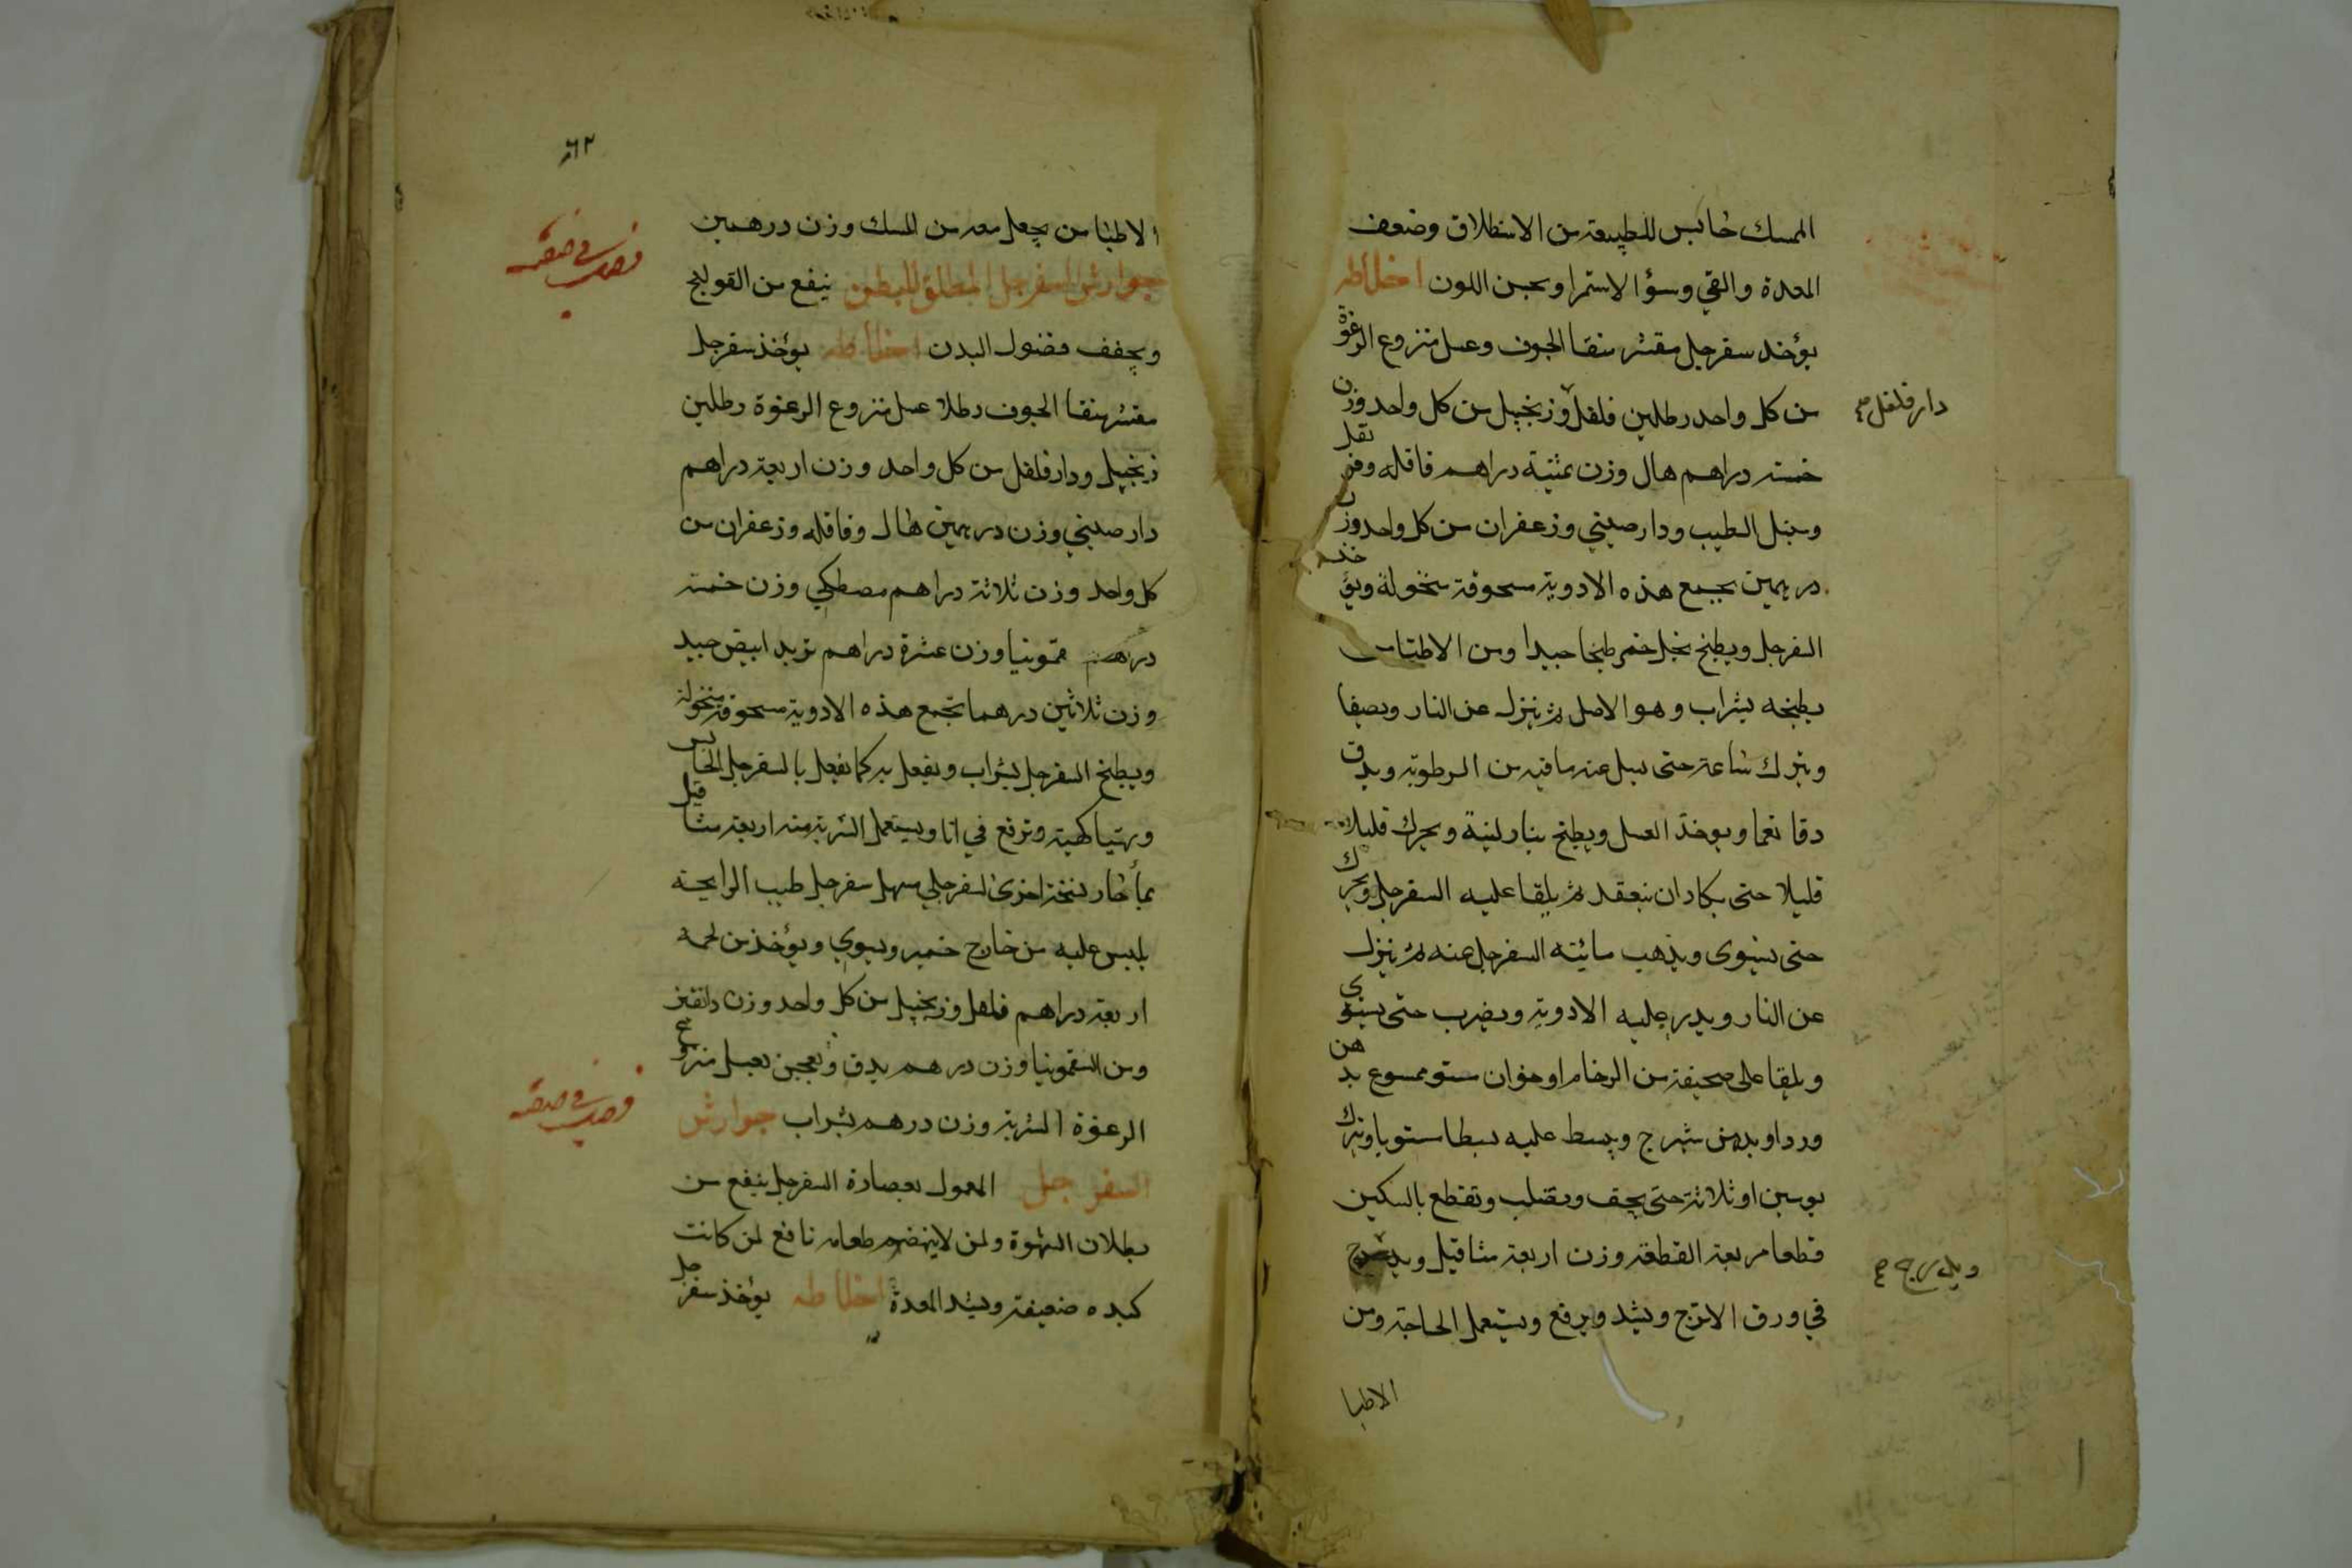 الممسك حابس للطبيعة من الاستطلاق وضعف
المعدة والقي وسؤ الاستمرا ويحسن اللون اخلاطه
يؤخذ سفرجل مقشر منقا الجوف وعسل منزوع الرغوة
من كل واحد رطلين فلفل وزنجبيل من كل واحد وزن
دار فلفل صح
خمسة دراهم هال وزن ثمنية دراهم قاقله وقرنفل
وسنبل الطيب ودارصيني وزعفران من كل واحد وزن
درهمين تجمع هذه الادوية مسحوقة منخولة ويؤخذ
السفرجل ويطبخ بخل خمر طبخا جيدا ومن الاطبا من
يطبخه بشراب وهو الاصل ثم ينزل عن النار ويصفا
ويترك ساعة حتى يسيل عنه ما فيه من الرطوبة ويدق
دقا نعما ويوخذ العسل ويطبخ بنار لينة ويحرك قليلا
قليلا حتى يكاد ان ينعقد ثم يلقا عليه السفرجل ويحرك
حتى يستوى ويذهب مائية السفرجل عنه ثم ينزل
عن النار ويذر عليه الادوية ويضرب حتى يستوي
ويلقا على صحيفة من الرخام او خوان مستو ممسوح بدهن
ورد او بدهن شيرج ويبسط عليه بسطا مستويا ويترك
يومين او ثلاثة حتى يجف ويصلب وتقطع بالسكين
قطعا مربعة القطعة وزن اربعة مثاقيل ويدرج
ويدرج صح
في ورق الاترج ويشد ويرفع ويستعمل الحاجة ومن
الاطبا
٦٢
الاطبا من يجعل معه من المسك وزن درهمين
جوارش السفرجل المطلق للبطن ينفع من القولنج
ويجفف فضول البدن اخلاطه يؤخذ سفرجل
مقشر منقا الجوف رطلا عسل منزوع الرغوة رطلين
زنجبيل ودار فلفل من كل واحد وزن اربعة دراهم
دارصيني وزن درهمين هال وقاقله وزعفران من
كل واحد وزن ثلاثة دراهم مصطكي وزن خمسة
دراهم سقمونيا وزن عشرة دراهم تربد ابيض جيد
وزن ثلاثين درهما تجمع هذه الادوية مسحوقة منخولة
ويطبخ السفرجل بشراب ويفعل به كما يفعل بالسفرجل الحابس
ويهيا كهيته وترفع في انا ويستعمل الشربة منه اربعة مثاقيل
بماء حار نسخة اخرى لسفرجلي مسهل سفرجل طيب الرايحة
يلبس عليه من خارج خمير ويسوى ويؤخذ من لحمه
اربعة دراهم فلفل وزنجبيل من كل واحد وزن دانقين
ومن السقمونيا وزن درهم يدق ويعجن بعسل منزوع
الرغوة الشربة وزن درهم بشراب جوارش
السفرجل المعمول بعصارة السفرجل ينفع من
بطلان الشهوة ولمن لا ينهضم طعامه نافع لمن كانت
كبده ضعيفة ويشد المعدة اخلاطه يؤخذ سفرجل